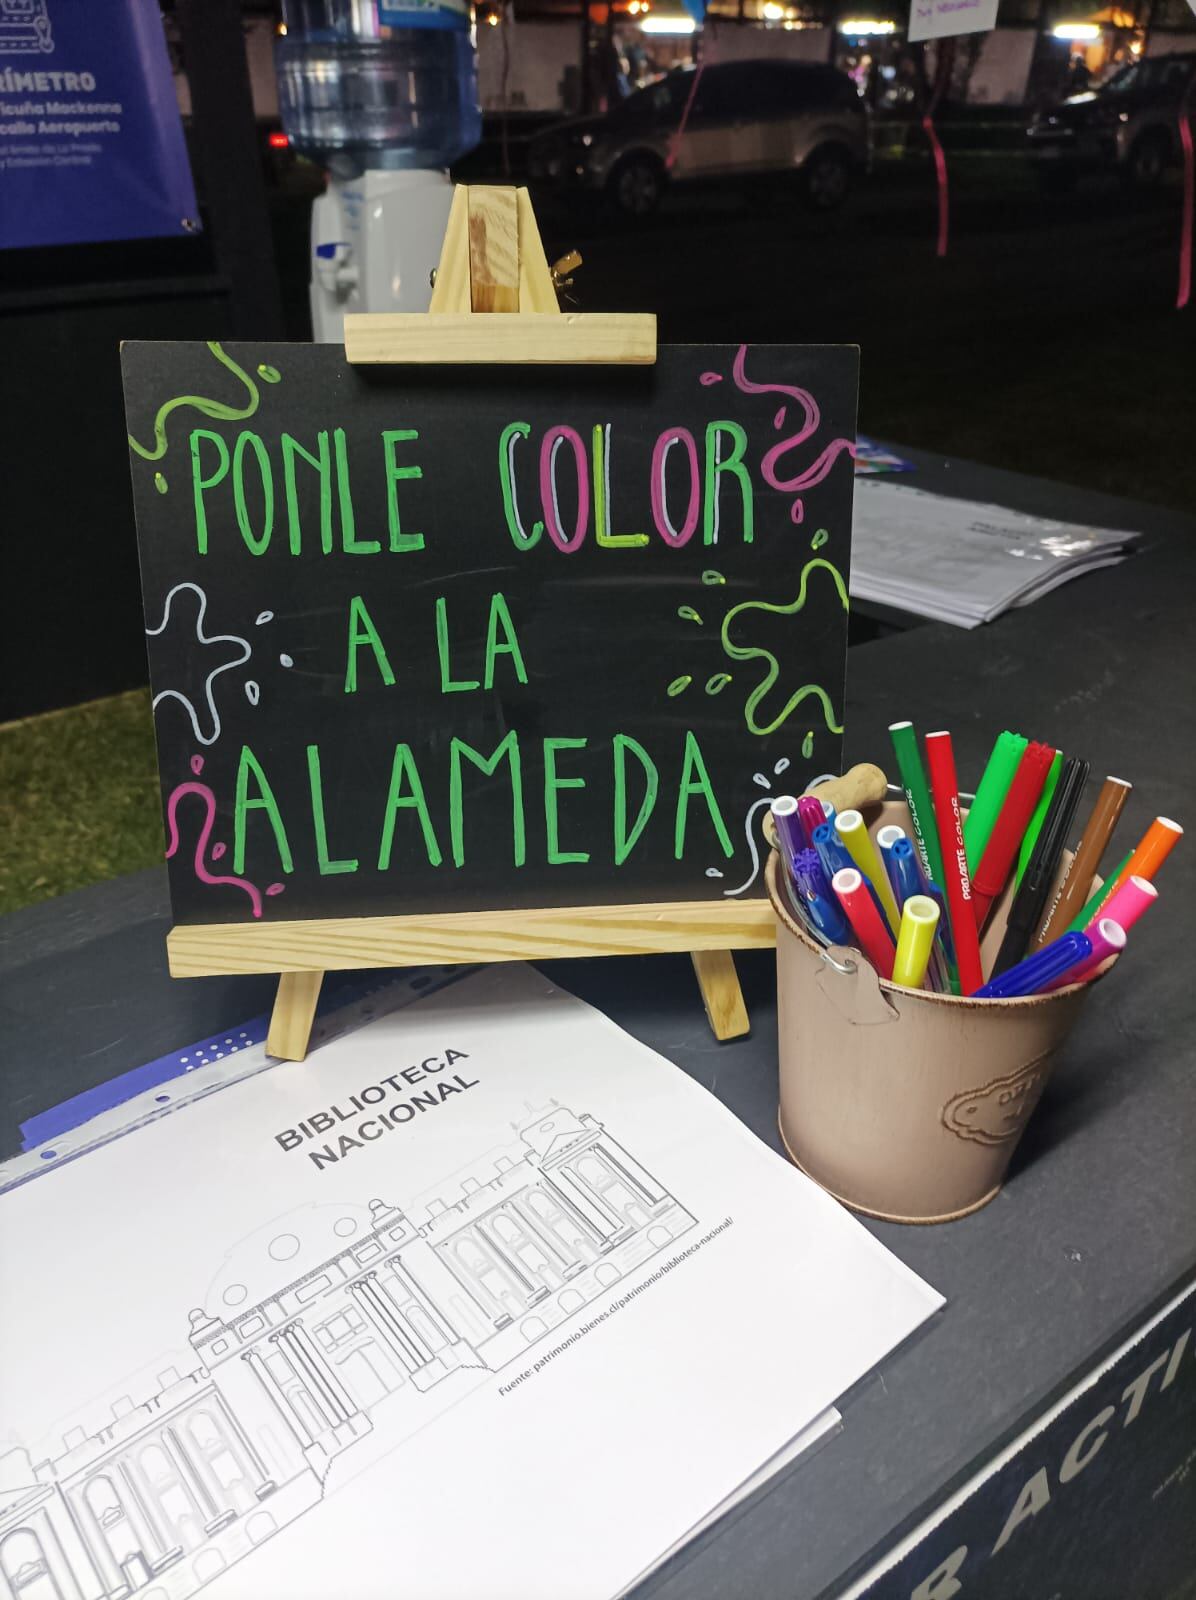 RÍMETRO
icuña Mackenna
calle Aeropuerto
PONLE COLOR
A LA
ALAMEDA
PROARTE COLOR
PROARTE COLOR
BIBLIOTECA
NACIONAL
Fuente: patrimonio.bienes.cl/patrimonio/biblioteca-nacional/
R ACTI